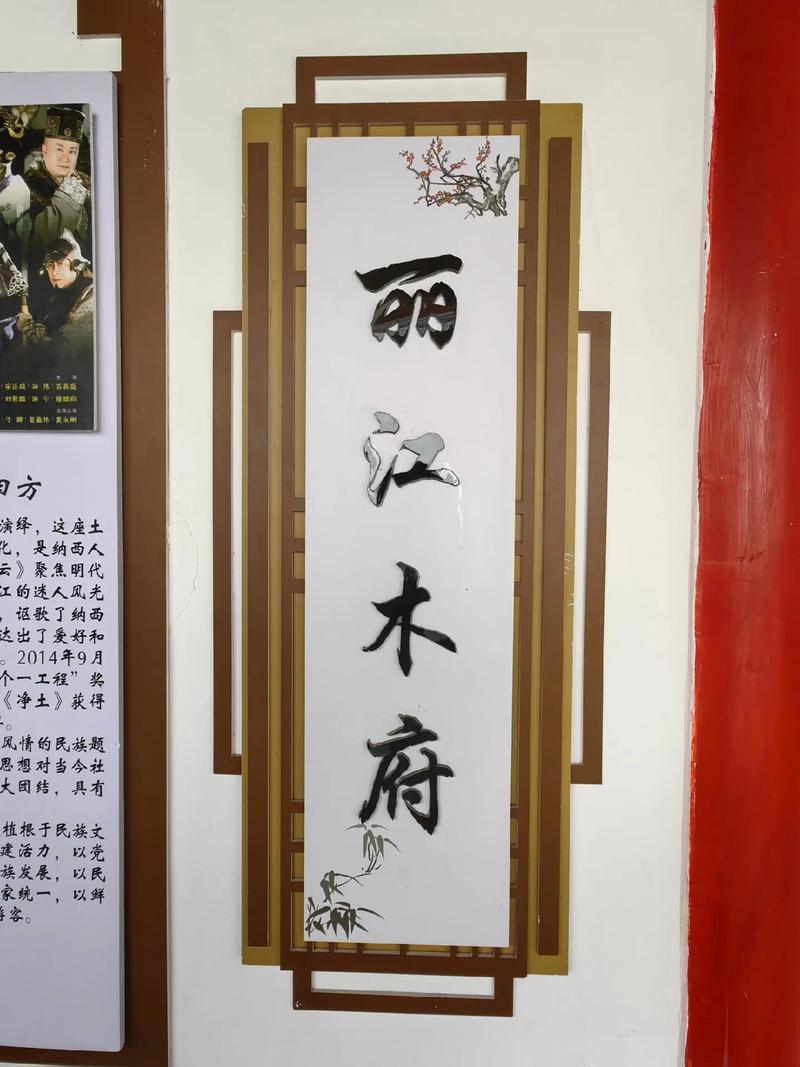 丽江木府
四方
演绎，这座土
化，是纳西人
云》聚焦明代
江的迷人风光
，讴歌了纳西
达出了爱好和
。2014年9月
个一工程”奖
《净土》获得
。
风情的民族题
思想对当今社
大团结，具有
植根于民族文
建活力，以党
族发展，以民
家统一，以鲜
游客。